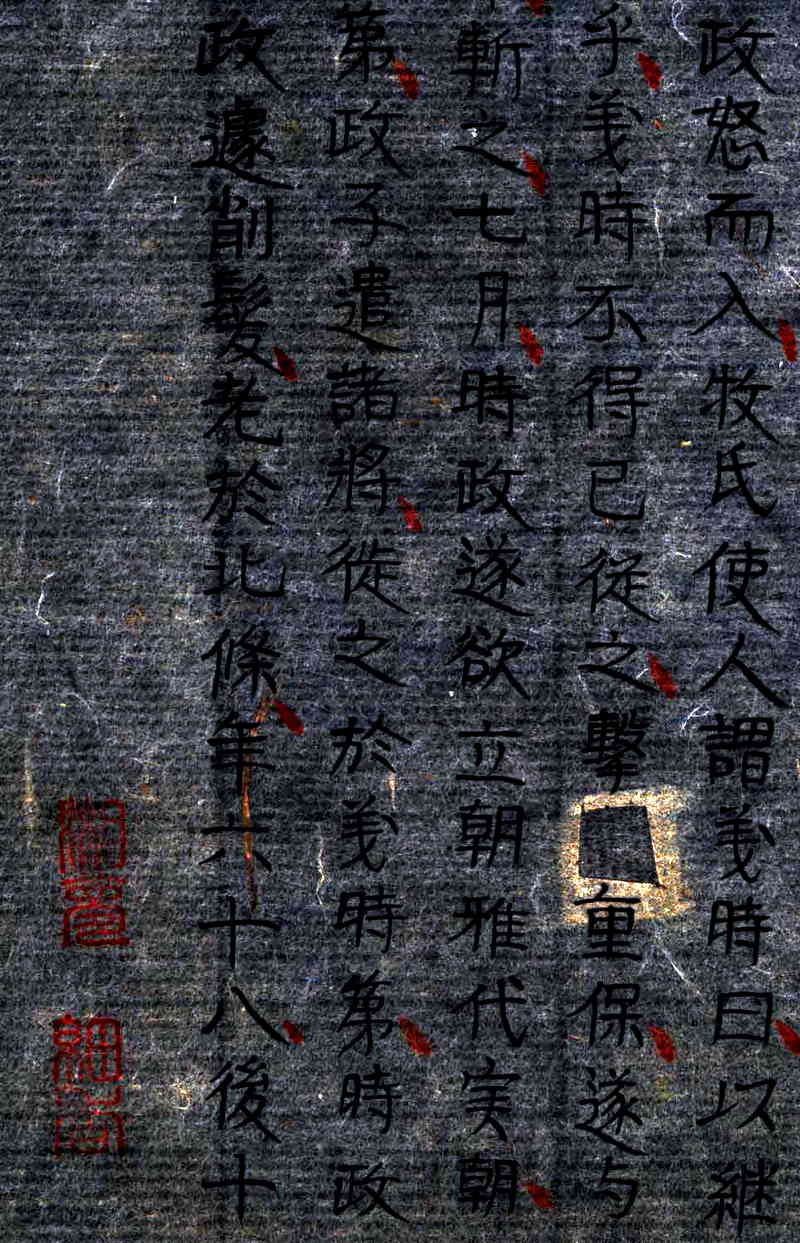 政怒而入牧氏使人謂義時曰以継
乎義時不得已従之撃重保遂与
斬之七月時政遂欲立朝雅代実朝
第政子遣諸将徙之於義時第時政
政遽削髪老於北條年六十八後十